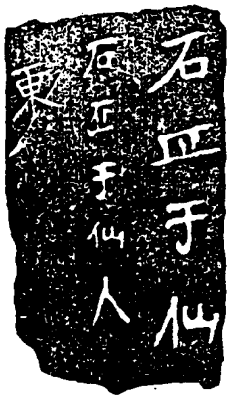 石匠于仙
石匠于仙人
東